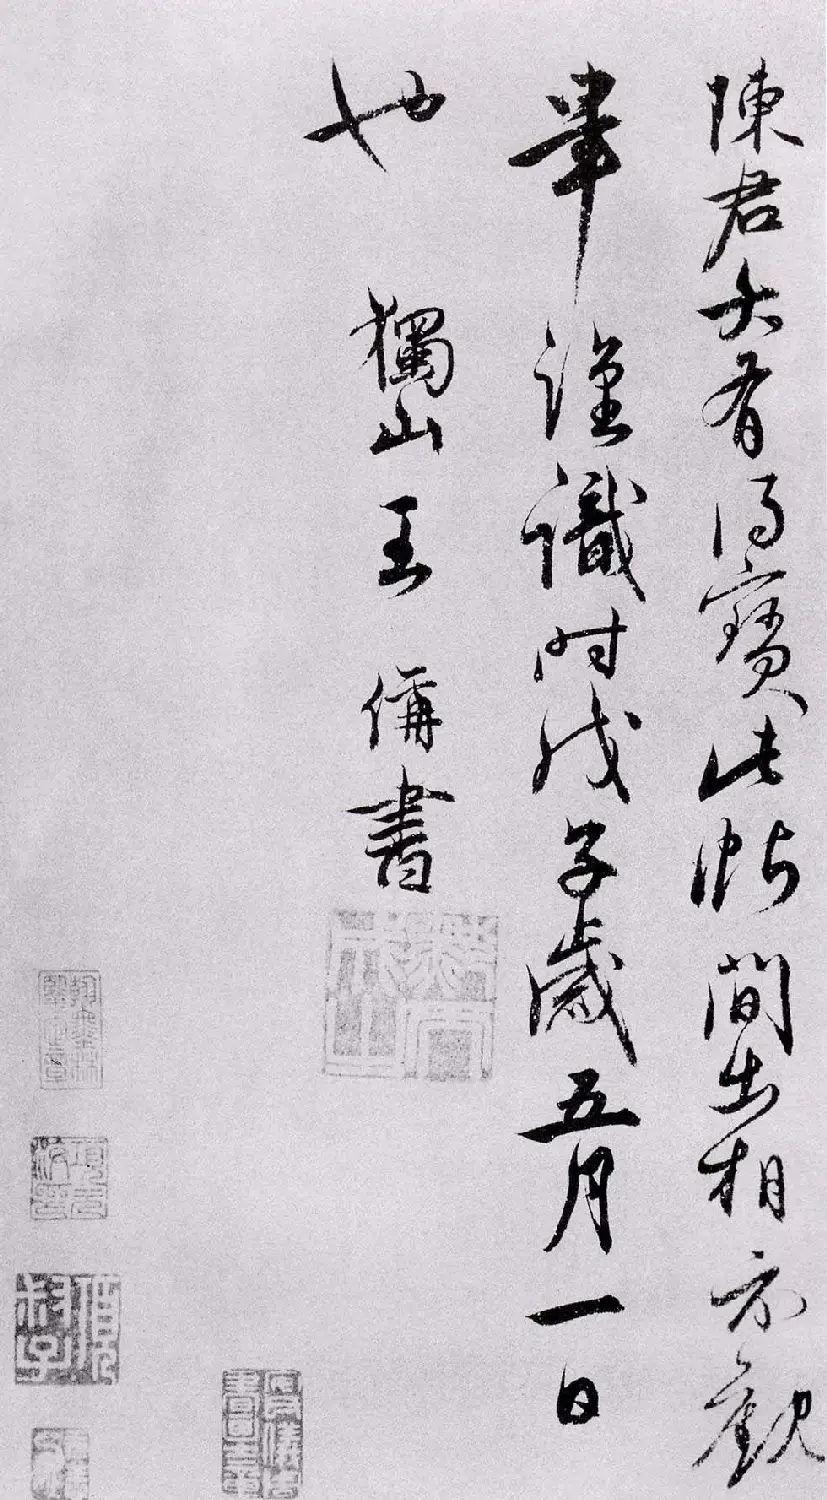 陳君大有得寶此帖間出相示觀
畢謹識時戊子歲五月一日
也
獨山王備書